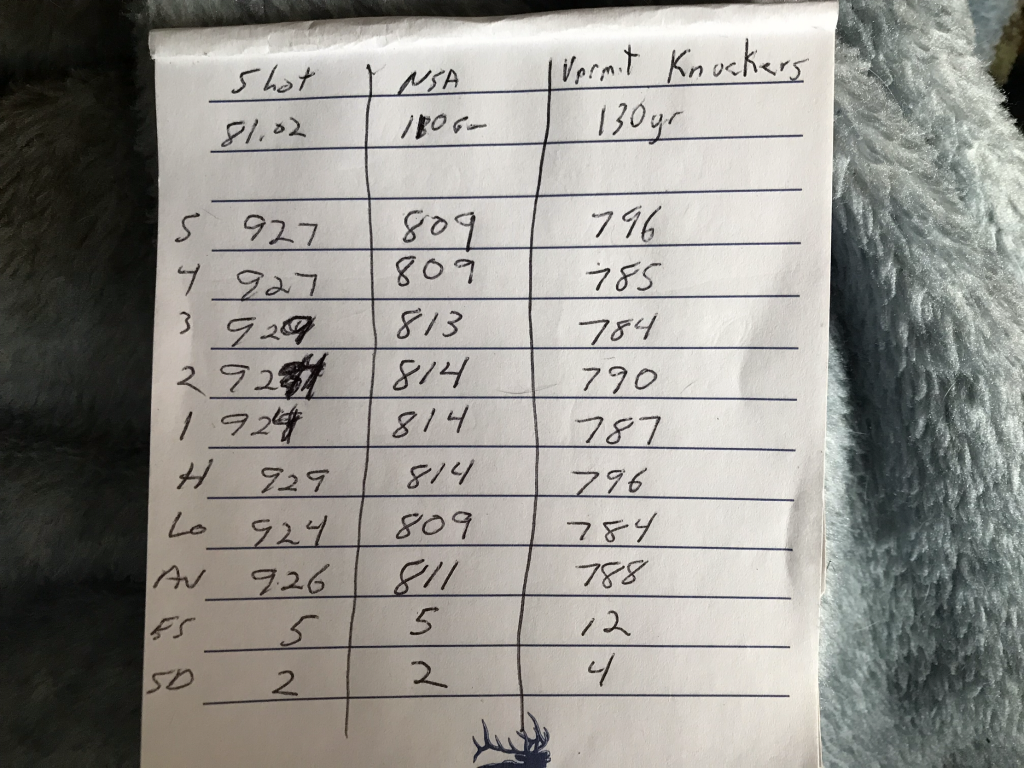 5 hot NSA Vprmit Knockers
81.02 110Gr 130gr
5 927 809 796
4 927 809 785
3 929 813 784
2 924 814 790
1 924 814 787
H 929 814 796
Lo 924 809 784
AV 926 811 788
ES 5 5 12
SD 2 2 4